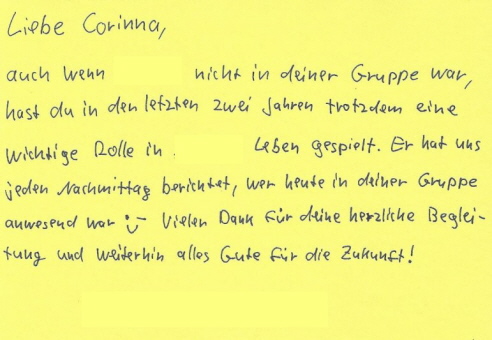 Liebe Corinna,
auch wenn nicht in deiner Gruppe war,
hast du in den letzten zwei Jahren trotzdem eine
wichtige Rolle in Leben gespielt. Er hat uns
jeden Nachmittag berichtet, wer heute in deiner Gruppe
anwesend war :-) Vielen Dank für deine herzliche Beglei-
tung und weiterhin alles Gute für die Zukunft!